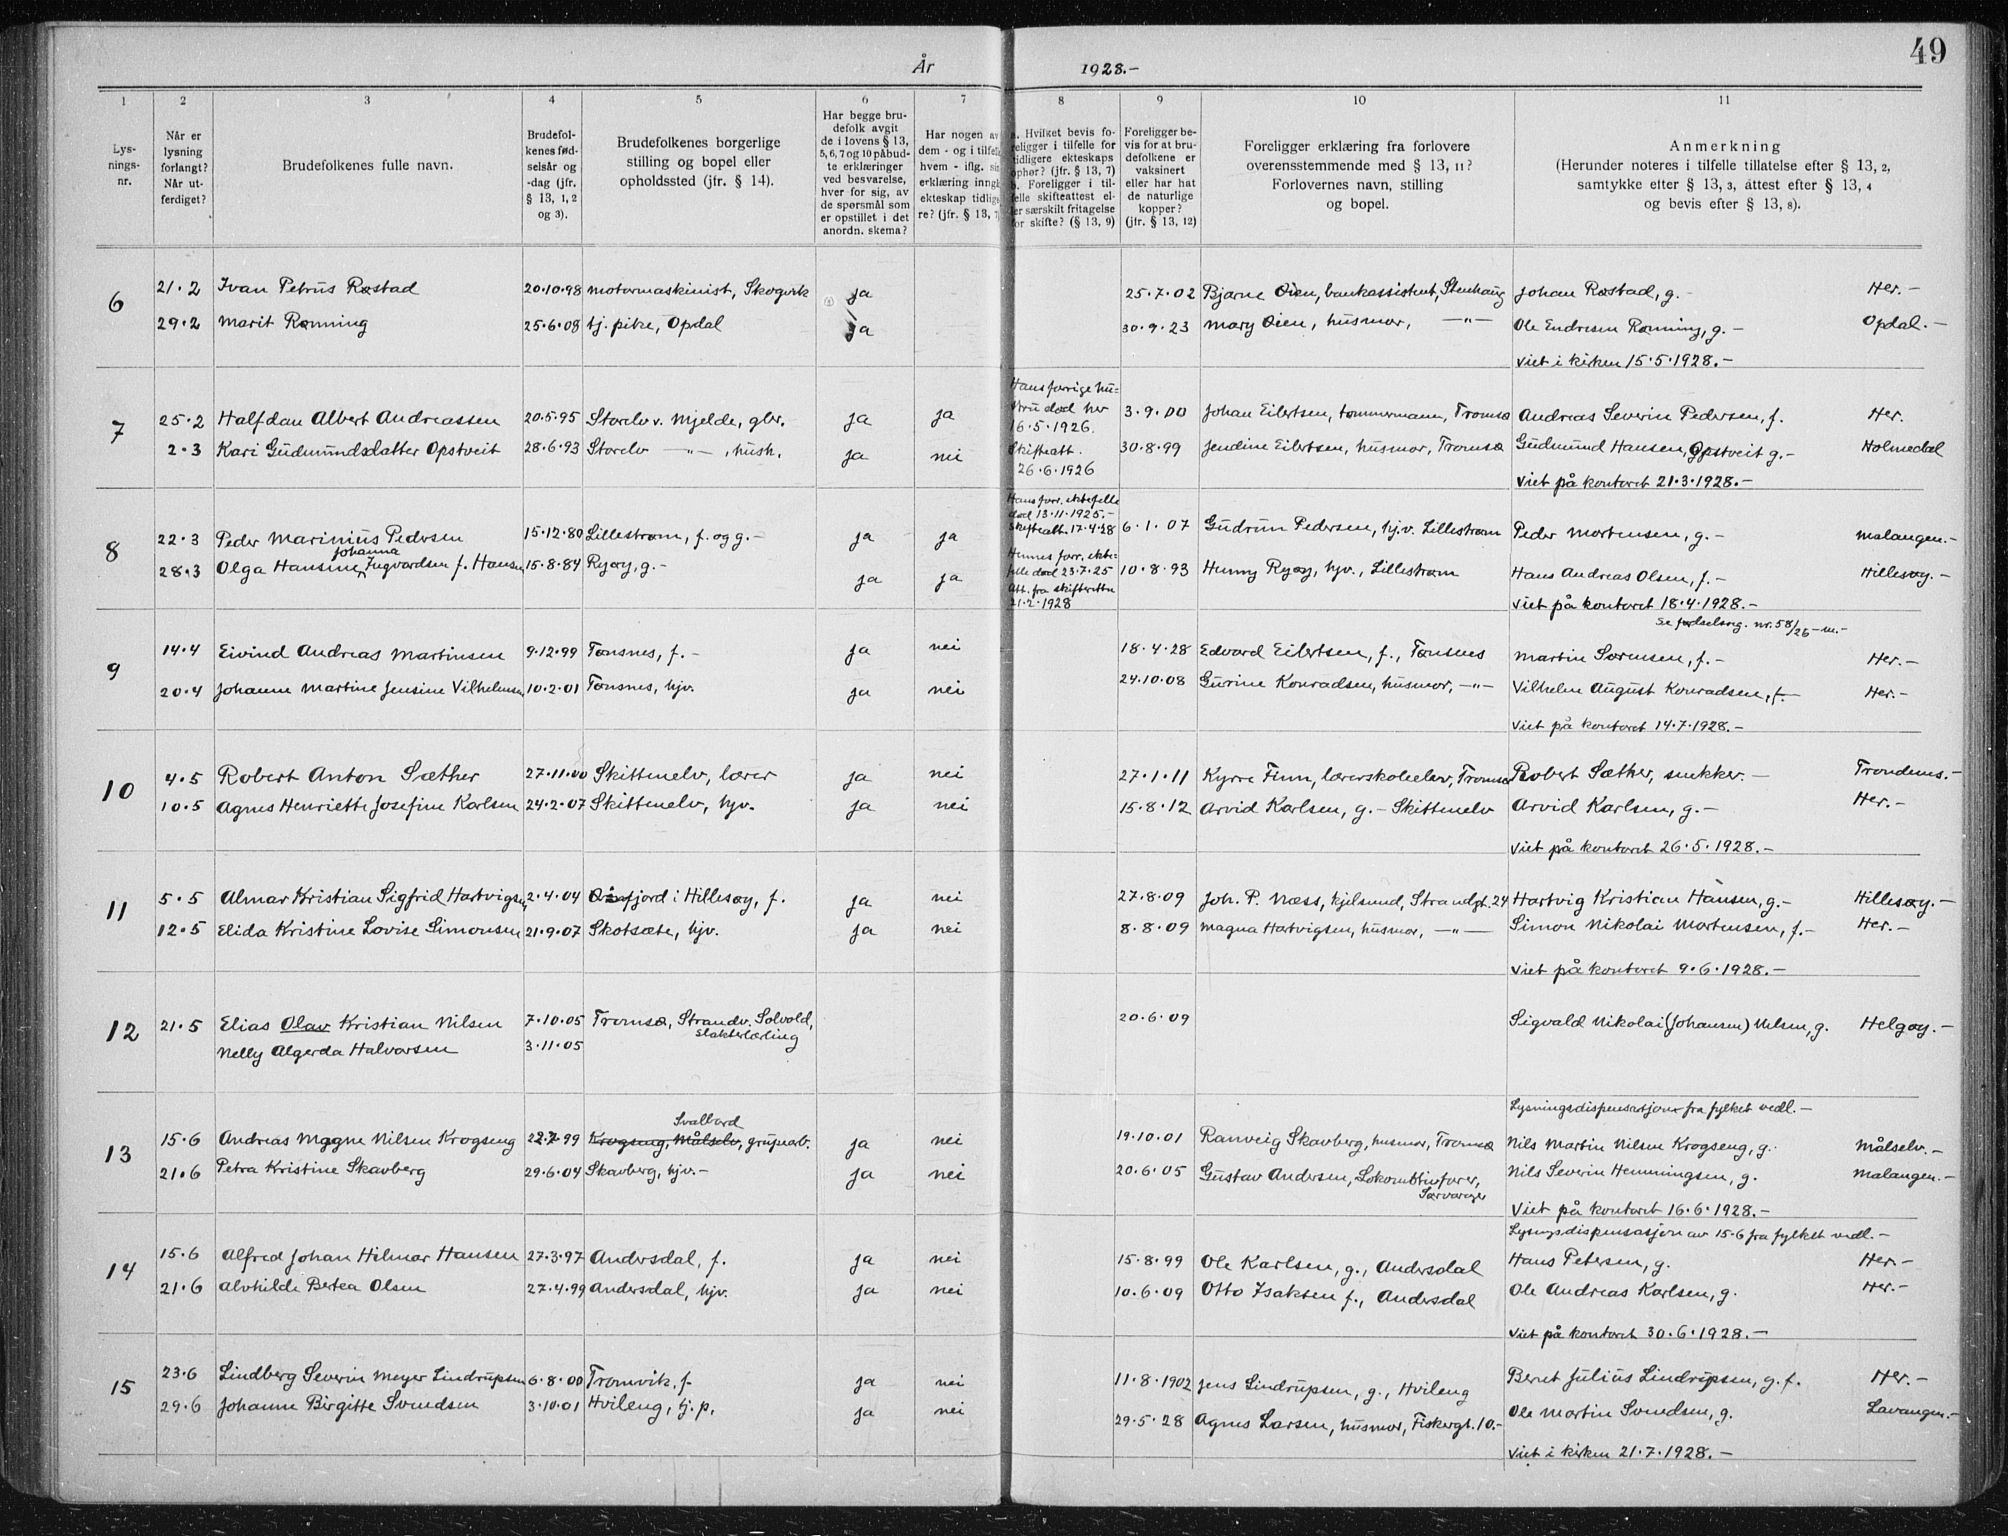 49
År 1928.-
1 2 3 4 5 6 7 8 9 10 11
Lys-
nings-
nr.
Når er
lysning
forlangt?
Når ut-
ferdiget?
Brudefolkenes fulle navn.
Brudefol-
kenes fød-
selsår og
-dag (jfr.
§ 13, 1, 2
og 3).
Brudefolkenes borgerlige
stilling og bopel eller
opholdssted (jfr. § 14).
Har begge bru-
defolk avgit
de i lovens § 13,
5, 6, 7 og 10 påbud-
te erklæringer
ved besvarelse,
hver for sig, av
de spørsmål som
er opstillet i det
anordn. skema?
Har nogen av
dem - og i tilfelle
hvem - iflg. si
erklæring inngå
ekteskap tidlige
re? (jfr. § 13, 7)
a. Hvilket bevis fo-
religger i tilfelle for
tidligere ekteskaps
ophør? (jfr. § 13, 7)
b. Foreligger i til-
felle skifteattest el-
ler særskilt fritagelse
for skifte? (§ 13, 9)
Foreligger be-
vis for at bru-
defolkene er
vaksinert
eller har hat
de naturlige
kopper?
(jfr. § 13, 12)
Foreligger erklæring fra forlovere
overensstemmende med § 13, 11?
Forlovernes navn, stilling
og bopel.
Anmerkning
(Herunder noteres i tilfelle tillatelse efter § 13, 2,
samtykke efter § 13, 3, attest efter § 13, 4
og bevis efter § 13, 8).
6 21.2 Ivan Petrus Røstad 20.10.98 motormaskinist, Skogvik ja 25.7.02 Bjarne Øien, bankassistent, Stenhaug Johan Røstad, g.- Her.-
29.2 Marit Rønning 25.6.08 tj. pike, Opdal ja 30.9.23 Mary Øien, husmor, -"- Ole Endresen Rønning, g.- Opdal.-
Viet i kirken 15.5.1928.-
7 25.2 Halfdan Albert Andreassen 20.5.95 Storelv v. Mjelde, gbr. ja ja Hans forrige hu-
stru død her
16.5.1926. 3.9.00 Johan Eilertsen, tømmermann, Tromsø Andreas Severin Pedersen, f. Her.
2.3 Kari Gudmundsdatter Opstveit 28.6.93 Storelv -"-, hush. ja nei Skifteatt.
26.6.1926 30.8.99 Jendine Eilertsen, husmor, Tromsø Gudmund Hansen, Opstveit g.- Holmedal
Viet på kontoret 21.3.1928.-
8 22.3 Peder Marinius Pedersen 15.12.80 Lillestrøm, f. og g.- ja ja Hans forr. ektefelle
død 13.11.1925.-
Skifteatt. 17.4.28 6.1.07 Gudrun Pedersen, hj.v. Lillestrøm Peder Mortensen, g.- Malangen.-
Johanna
28.3 Olga Hansine Ingvardsen f. Hansen 15.8.84 Ryøy, g.- ja ja Hennes forr. ekte-
felle død 23.7.25
Att. fra skifteretten
21.2.1928 10.8.93 Henny Ryøy, hjv., Lillestrøm Hans Andreas Olsen, f.- Hillesøy.-
Viet på kontoret 18.4.1928.-
Se fødselsreg. nr. 58/26 - m.-
9 14.4 Eivind Andreas Martinsen 9.12.99 Tønsnes, f.- ja nei 18.4.28 Edvard Eilertsen, f., Tønsnes Martin Sørensen, f.- Her.-
20.4 Johanne Martine Jensine Vilhelmsen 10.2.01 Tønsnes, hjv. ja nei 24.10.08 Gurine Konradsen, husmor, -"- Vilhelm August Konradsen, f.- Her.-
Viet på kontoret 14.7.1928.-
10 4.5 Robert Anton Sæther 27.11.00 Skittenelv, lærer ja nei 27.1.11 Kyrre Finn, lærerskoleelev, Tromsø Robert Sæther, snekker.- Trondenes.-
10.5 Agnes Henriette Josefine Karlsen 24.2.07 Skittenelv, hjv. ja nei 15.8.12 Arvid Karlsen, g.- Skittenelv Arvid Karlsen, g.- Her.-
Viet på kontoret 26.5.1928.-
11 5.5 Almar Kristian Sigfrid Hartvigsen 2.4.04 fjord i Hillesøy, f. ja nei 27.8.09 Joh. P. Næss, kjelsmed, Strandgt. 24 Hartvig Kristian Hansen, g.- Hillesøy.-
12.5 Elida Kristine Lovise Simonsen 21.9.07 Skotsæte, hjv. ja nei 8.8.09 Magna Hartvigsen, husmor, -"- Simon Nikolai Mortensen, f.- Her.-
Viet på kontoret 9.6.1928.-
12 21.5 Elias Olav Kristian Nilsen 7.10.05 Tromsø, Strandv. Solvold,
slakterlærling 20.6.09 Sigvald Nikolai (Johansen) Nilsen, g. Helgøy.-
Nelly Algerda Halvorsen 3.11.05
Lysningsdispensasjon fra fylket vedl.-
Svalbard
13 15.6 Andreas Magne Nilsen Krogseng 22.7.99 Krogseng, Målselv, grupearb. ja nei 19.10.01 Ranveig Skavberg, husmor, Tromsø Nils Martin Nilsen Krogseng, g. Målselv.-
21.6 Petra Kristine Skavberg 29.6.04 Skavberg, hjv.- ja nei 20.6.05 Gustav Andersen, Lokomotivfører,
Sørvaranger Nils Severin Henningsen, g. Malangen.-
Viet på kontoret 16.6.1928.-
Lysningsdispensasjon av 15.6 fra fylket vedl.-
14 15.6 Alfred Johan Hilmar Hansen 27.3.97 Andersdal, f. ja nei 15.8.99 Ole Karlsen, g., Andersdal Hans Petersen, g. Her.-
21.6 Alvhilde Bertea Olsen 27.4.99 Andersdal, hjv. ja nei 10.6.09 Otto Isaksen f., Andersdal Ole Andreas Karlsen, g. Her.-
Viet på kontoret 30.6.1928.-
15 23.6 Lindberg Severin Meyer Lindrupsen 6.8.00 Tromvik, f. ja nei 11.8.1902 Jens Lindrupsen, g., Hvileng Bernt Julius Lindrupsen, g. f. Her.-
29.6 Johanne Birgitte Svendsen 3.10.01 Hvileng, tj. p. ja nei 29.5.28 Agnes Larsen, husmor, Fiskergt. 10.- Ole Martin Svendsen, g. Lavangen.-
Viet i kirken 21.7.1928.-